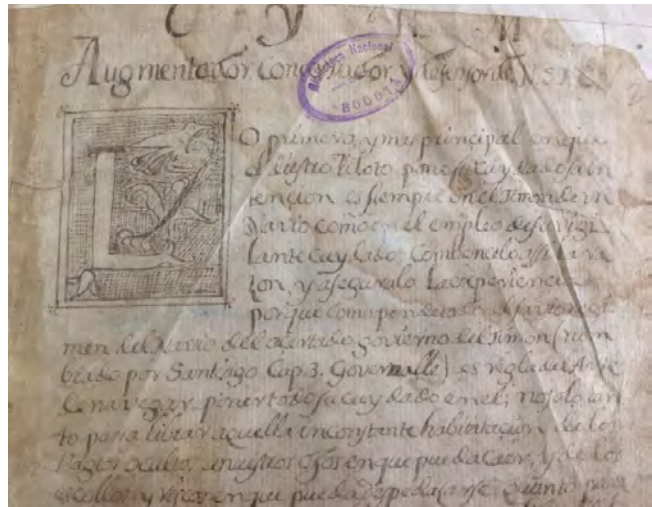 Augmentador conservador y defensor de N. S. F.
Biblioteca Nacional
BOGOTA
LO primero, y mas principal en que
el diestro Piloto pone su cuydadosa in
tencion es siempre en el Timon de su
Navio como en el empleo de su vigi
lante cuydado. Combencelo assi la ra
zon, y aseguralo la experiencia
porque como pende
men del Navio del acertado govierno del Timon (nom
brado por Santiago Cap. 3. Governalle) es regla del Arte
de navegar poner todo su cuydado en el; no solo
to para librar aquella inconstante habitacion de los
ocultos a nuestros ojos en que pueda caer, y de los
escollos y en que pueda despedaçarse, quanto para